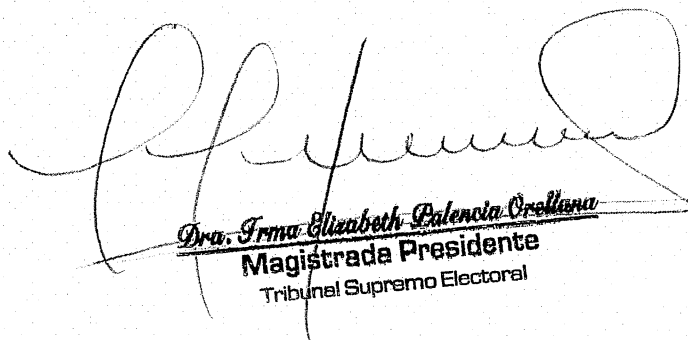 Dra. Irma Elizabeth Palencia Orellana
Magistrada Presidente
Tribunal Supremo Electoral